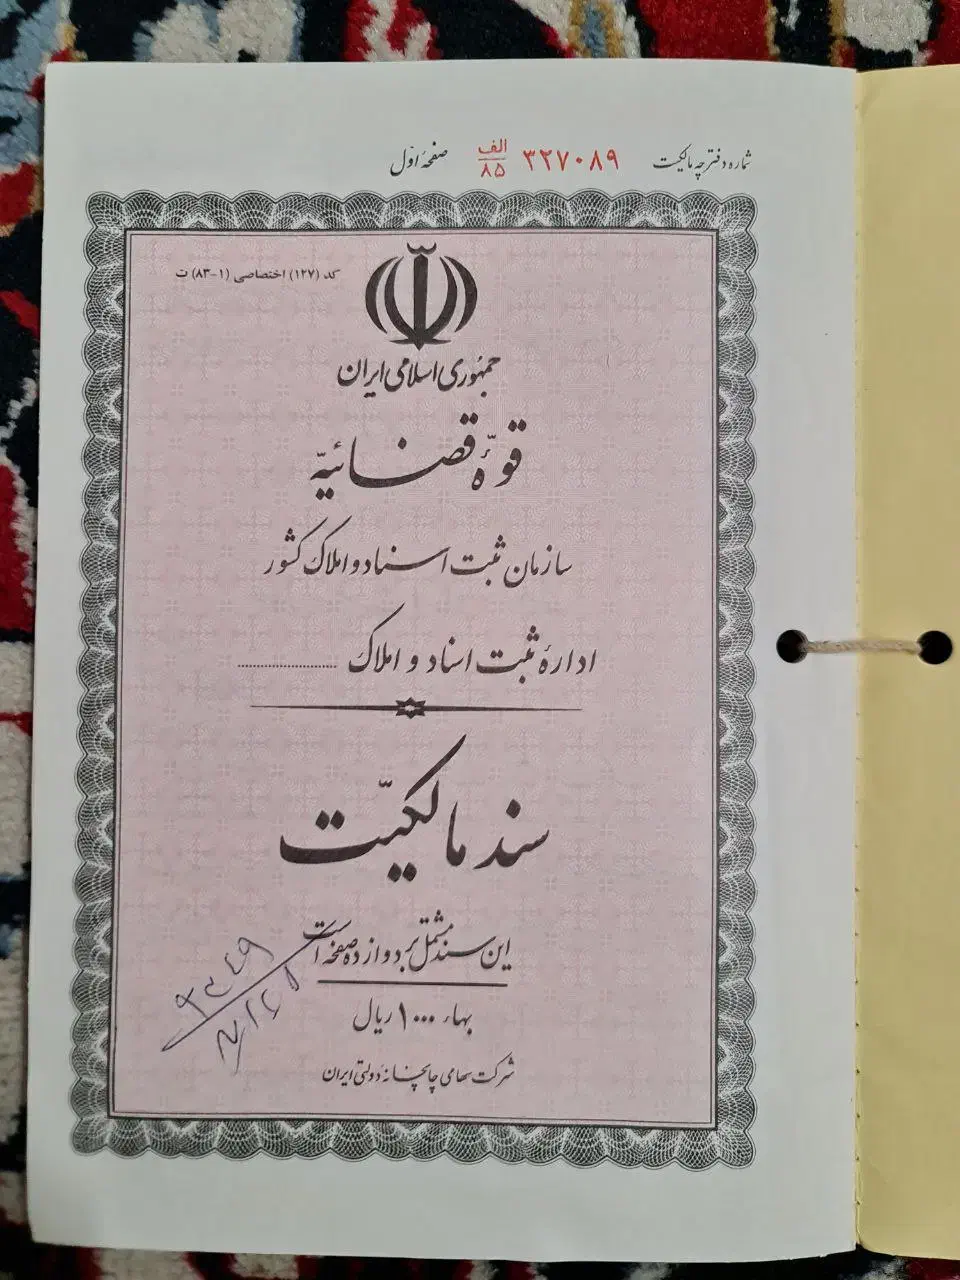 شماره دفترچه مالکیت ۳۲۷۰۸۹ الف/۸۵ صفحهٔ اوّل
کد (۱۲۷) اختصاصی (۱-۸۳) ت
جمهوری اسلامی ایران
قوّهٔ قضائیّه
سازمان ثبت اسناد و املاک کشور
ادارهٔ ثبت اسناد و املاک ....................
سند مالکیّت
این سند مشتمل بر دوازده صفحه است
بهاء ۱۰۰۰ ریال
شرکت سهامی چاپخانهٔ دولتی ایران